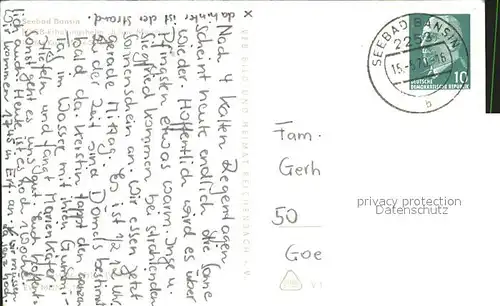 Seebad Bansin
x Nach 4 kalten Regentagen
scheint heute endlich die Sonne
wieder. Hoffentlich wird es über
Pfingsten etwas warm. Inge u.
Siegfried kommen bei strahlendem
Sonnenschein an. Wir essen jetzt
gerade Mittag. Es ist 12.12 Uhr.
Zu der Zeit sind
bald da. Kerstin tappt den ganzen
Tag im Wasser mit ihren Gummi-
stiefeln und fängt Marienkäfer.
Sonst geht es uns gut. Euch hoffentl.
lich auch. Heute ist es noch 1 Woche.
Wir kommen 17.45 in Erf. an.
VEB BILD UND HEIMAT REICHENBACH I. V.
SEEBAD BANSIN
2253
b
DEUTSCHE
DEMOKRATISCHE REPUBLIK
10
Fam.
Gerh
50
Goe
V 1
privacy protection
Datenschutz